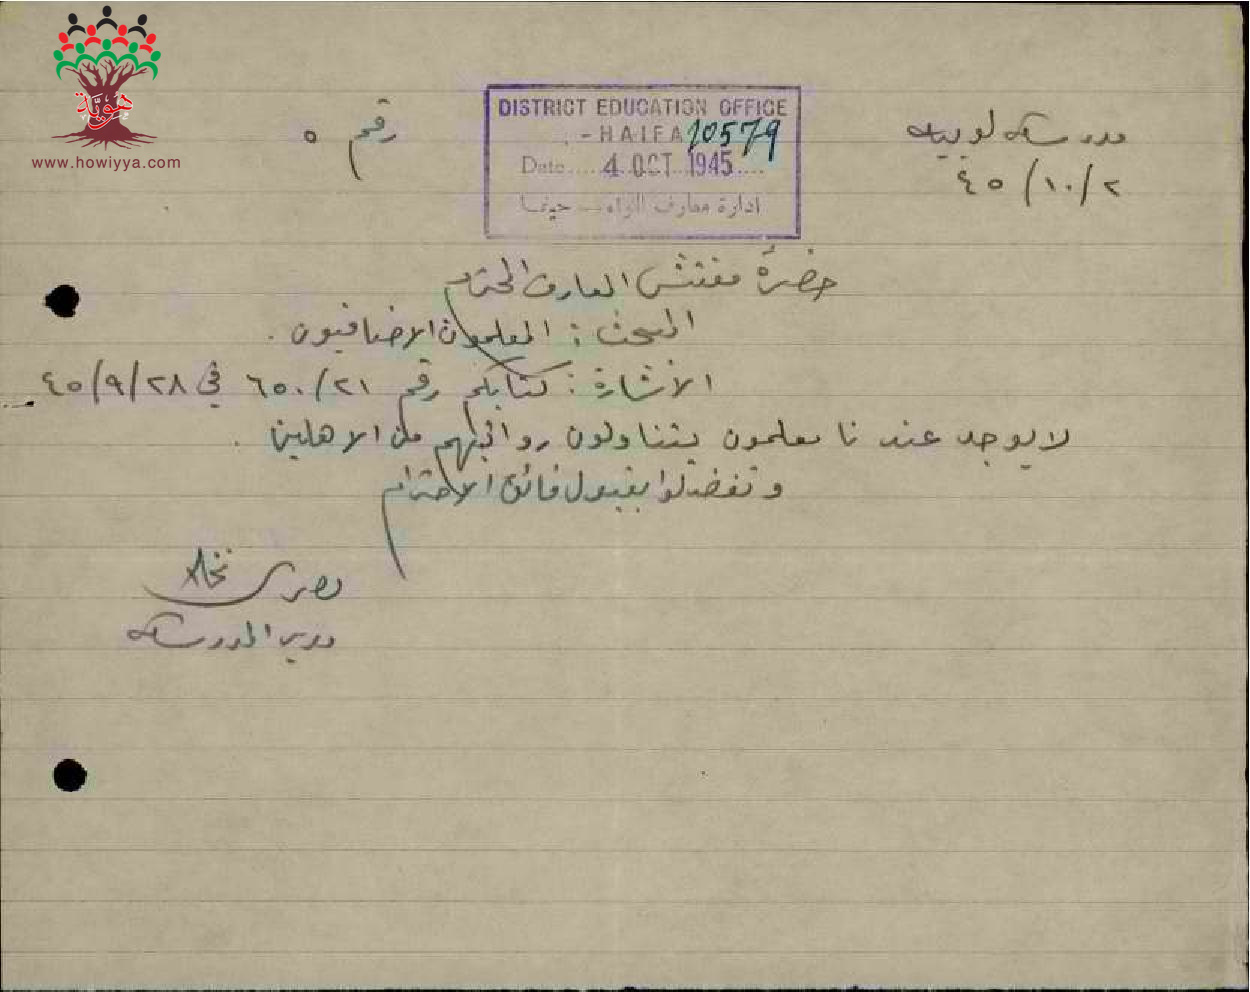 هويّة
www.howiyya.com
مدرسة لوبيه
٢/١٠/٤٥
DISTRICT EDUCATION OFFICE
- HAIFA 10579
Date.....4 OCT 1945....
ادارة معارف اللواء حيفا
رقم ٥
حضرة مفتش المعارف المحترم
المبحث : المعلمون الاضافيون .
الاشارة : كتابكم رقم ٦٥٠/٢١ في ٢٨/٩/٤٥
لا يوجد عندنا معلمون يتناولون رواتبهم من الاهلين .
وتفضلوا بقبول فائق الاحترام
مدير المدرسة